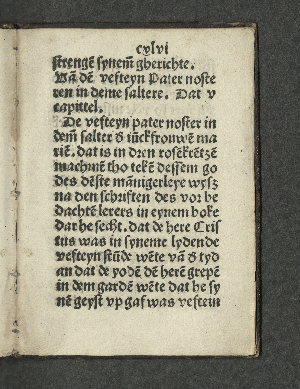 cxlvi
strengẽ synem̃ gherichte.
Uã dẽ vefteyn Pater noste
ren in deme saltere. Dat v
capittel.
De vefteyn pater noster in
dem̃ salter d' iũckfrouwẽ ma
riẽ. dat is in dren rosẽkrẽtzẽ
machmẽ tho tekẽ dessem̃ go
des dẽste mãnigerleye wysz
na den schriften des vor be
dachtẽ lerers in eynem boke
dar he secht. dat de here Cris
tus was in syneme lydende
vefteyn stũde wẽte vã d' tyd
an dat de yodẽ dẽ herẽ grepẽ
in dem gardẽ wẽte dat he sy
nẽ geyst vp gaf was veftein